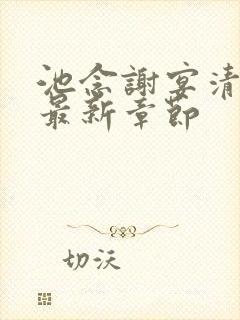 池念謝宴清
最新章節
切沃